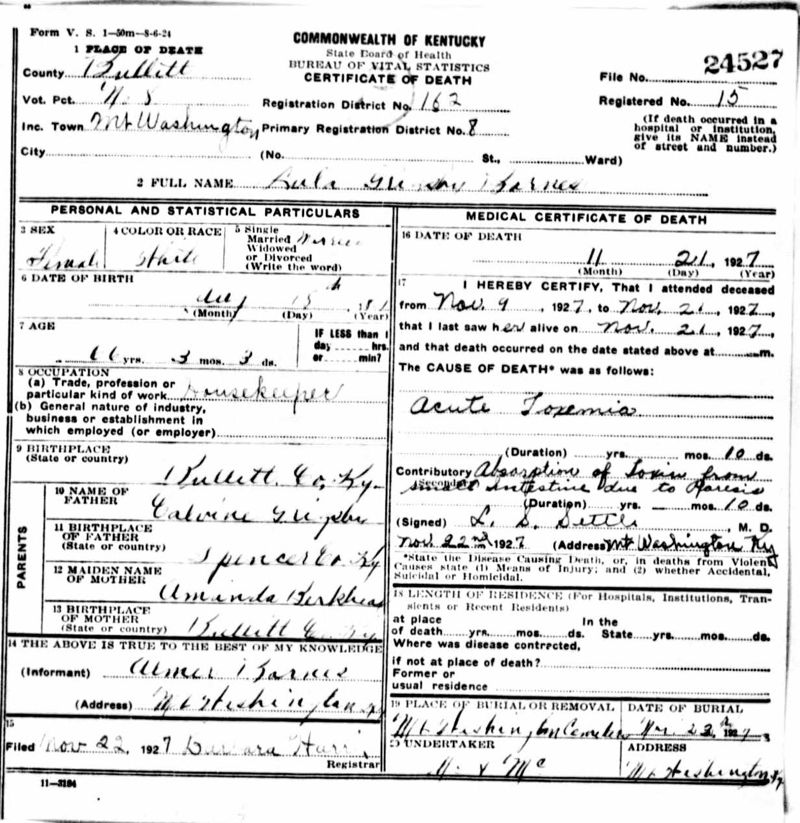 Form V. S. 1-50m-8-6-24
COMMONWEALTH OF KENTUCKY
State Board of Health
BUREAU OF VITAL STATISTICS
CERTIFICATE OF DEATH
1 PLACE OF DEATH
County Bullitt
Vot. Pct. No 8
Inc. Town Mt Washington
City
Registration District No. 162
Primary Registration District No. 8
(No. St., Ward)
File No. 24527
Registered No. 15
(If death occurred in a
hospital or institution,
give its NAME instead
of street and number.)
2 FULL NAME Barnes
PERSONAL AND STATISTICAL PARTICULARS
3 SEX
Female
4 COLOR OR RACE
White
5 Single
Married
Widowed
or Divorced
(Write the word)
6 DATE OF BIRTH
(Month) (Day) (Year)
7 AGE
66 yrs. 3 mos. 3 ds.
IF LESS than 1
day hrs.
or min?
8 OCCUPATION
(a) Trade, profession or
particular kind of work Housekeeper
(b) General nature of industry,
business or establishment in
which employed (or employer)
9 BIRTHPLACE
(State or country)
Bullitt Co, Ky.
PARENTS
10 NAME OF
FATHER
Calvine Grigsby
11 BIRTHPLACE
OF FATHER
(State or country)
Spencer Co Ky
12 MAIDEN NAME
OF MOTHER
Amanda
13 BIRTHPLACE
OF MOTHER
(State or country)
Bullitt Co Ky
14 THE ABOVE IS TRUE TO THE BEST OF MY KNOWLEDGE
(Informant) Barnes
(Address) Mt Washington Ky
15
Filed Nov 22, 1927 Barbara
Registrar
11-3184
MEDICAL CERTIFICATE OF DEATH
16 DATE OF DEATH
11 21, 1927
(Month) (Day) (Year)
17 I HEREBY CERTIFY, That I attended deceased
from Nov. 9, 1927, to Nov. 21, 1927,
that I last saw her alive on Nov. 21, 1927,
and that death occurred on the date stated above at m.
The CAUSE OF DEATH* was as follows:
Acute Toxemia
(Duration) yrs. mos. 10 ds.
Contributory Absorption of toxin from
(Secondary) small intestine due to Paresis
(Duration) yrs. mos. 10 ds.
(Signed) L. S. Settle, M. D.
Nov. 22nd 1927 (Address) Mt Washington Ky
*State the Disease Causing Death, or, in deaths from Violent
Causes state (1) Means of Injury; and (2) whether Accidental,
Suicidal or Homicidal.
18 LENGTH OF RESIDENCE (For Hospitals, Institutions, Tran-
sients or Recent Residents)
at place In the
of death yrs. mos. ds. State yrs. mos. ds.
Where was disease contracted,
if not at place of death?
Former or
usual residence
19 PLACE OF BURIAL OR REMOVAL
Mt Washington Cemetery
DATE OF BURIAL
1927
20 UNDERTAKER
ADDRESS
Mt Washington Ky